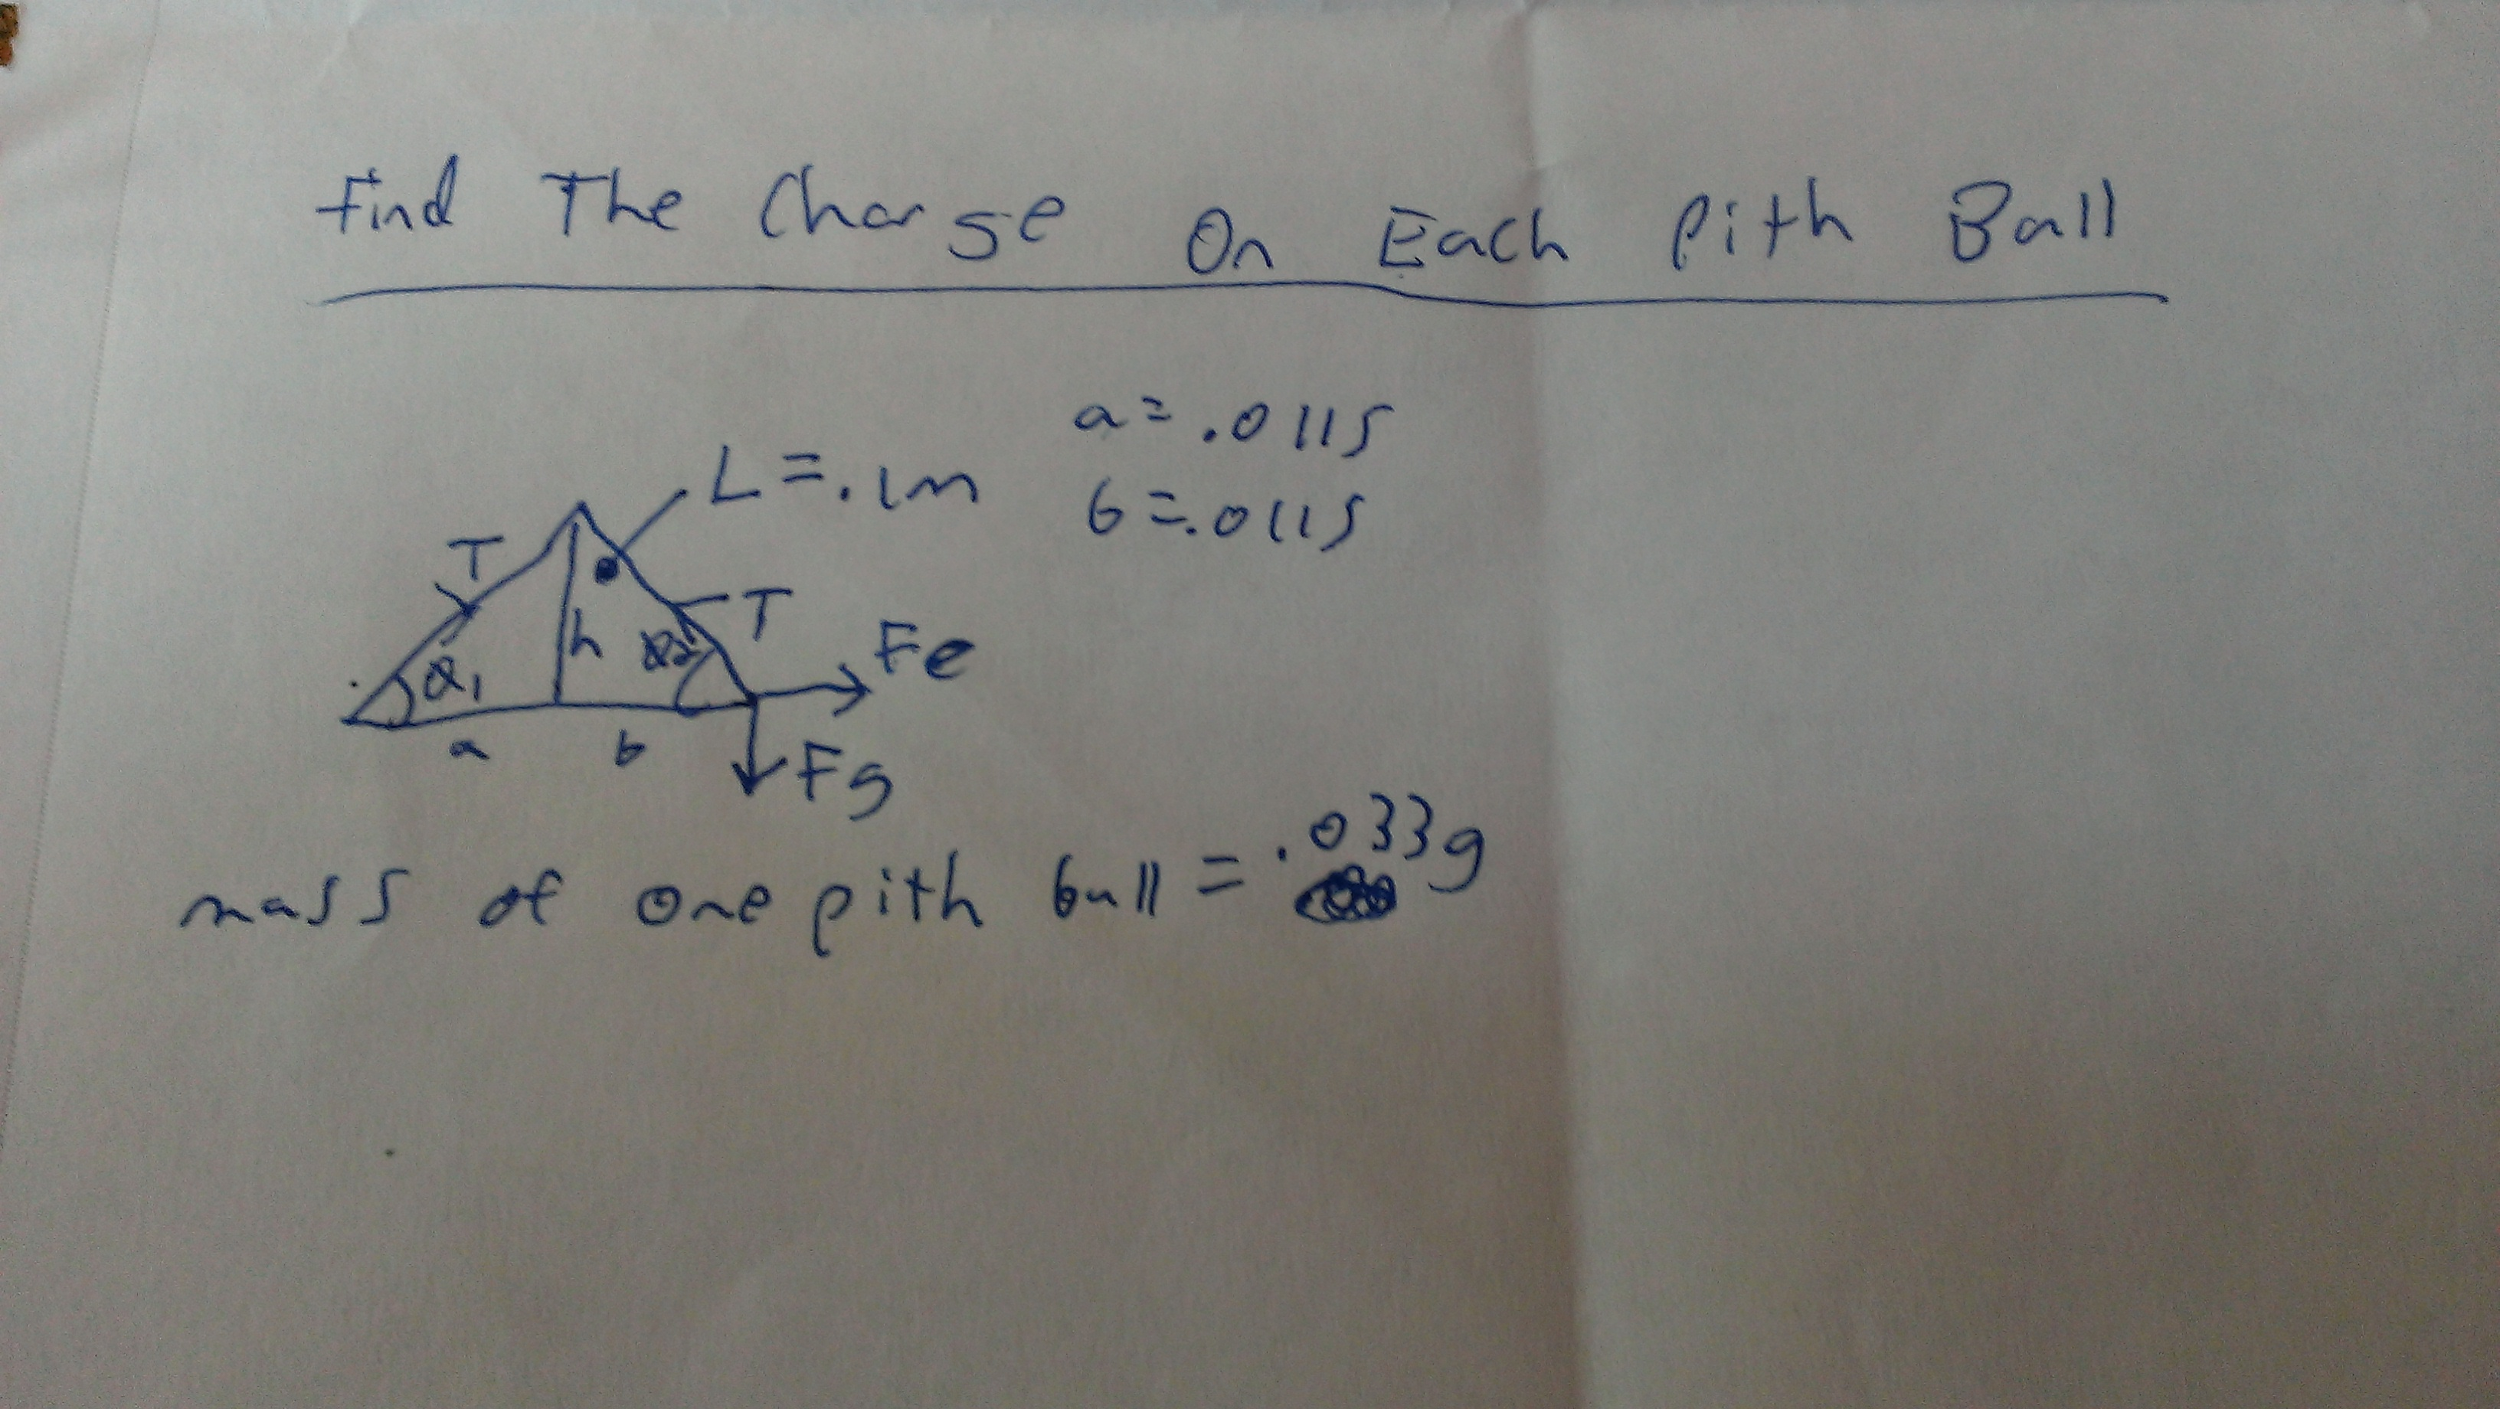 Find The Charge On Each Pith Ball
a = .0115
L = .1m
b = .0115
T
T
h
Fe
a
b
Fg
mass of one pith ball = .033g